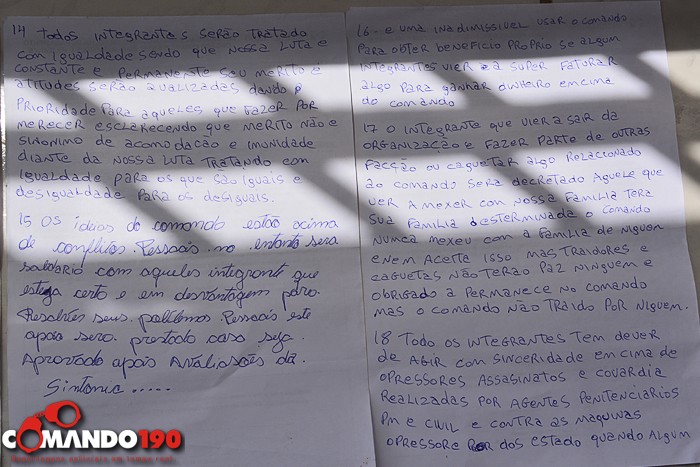 14 Todos INTEGRANTES SERÃO TRATADO
COM IGUALDADE SENDO QUE NOSSA LUTA E
CONSTANTE E PERMANENTE SEU MERITO E
ATITUDES SERÃO AVALIZADAS DANDO
PRIORIDADE PARA AQUELES QUE FAZER POR
MERECER ESCLARECENDO QUE MERITO NÃO E
SINONIMO DE ACOMODAÇÃO E IMUNIDADE
DIANTE DA NOSSA LUTA TRATANDO COM
IGUALDADE PARA OS QUE SÃO IGUAIS E
DESIGUALDADE PARA OS DESIGUAIS.
15 Os ideais do comando estão acima
de conflitos Pessoais no entanto sera
solidario com aqueles integrante que
esteja certo e em desvantagem para
Resolver seus poblemas Pessoais este
apoio sera prestado caso seja
Aprovado apois Avaliações da
Sintonia.....
16 - E UMA INADIMISSIVEL USAR O COMANDO
PARA OBTER BENEFICIO PROPRIO SE ALGUM
INTEGRANTES VIER A SUPER FATURAR
ALGO PARA GANHAR DINHEIRO EM CIMA
DO COMANDO
17 O INTEGRANTE QUE VIER A SAIR DA
ORGANIZAÇÃO E FAZER PARTE DE OUTRAS
FACÇÃO OU CAGUETAR ALGO RELACIONADO
AO COMANDO SERA DECRETADO AQUELE QUE
VER A MEXER COM NOSSA FAMILIA TERA
SUA FAMILIA DESTERMINADA O COMANDO
NUNCA MEXEU COM A FAMILIA DE NIGUEM
E NEM ACEITA ISSO MAS TRAIDORES E
CAGUETAS NÃO TERÃO PAZ NINGUEM E
OBRIGADO A PERMANECE NO COMANDO
MAS O COMANDO NÃO TRAIDO POR NIGUEM.
18 TODO OS INTEGRANTES TEM DEVER
DE AGIR COM SINCERIDADE EM CIMA DE
OPRESSORES ASSASINATOS E COVARDIA
REALIZADAS POR AGENTES PENITENCIARIOS
PM E CIVIL E CONTRA AS MAQUINAS
OPRESSORE DOS ESTADO QUANDO ALGUM
COMANDO190